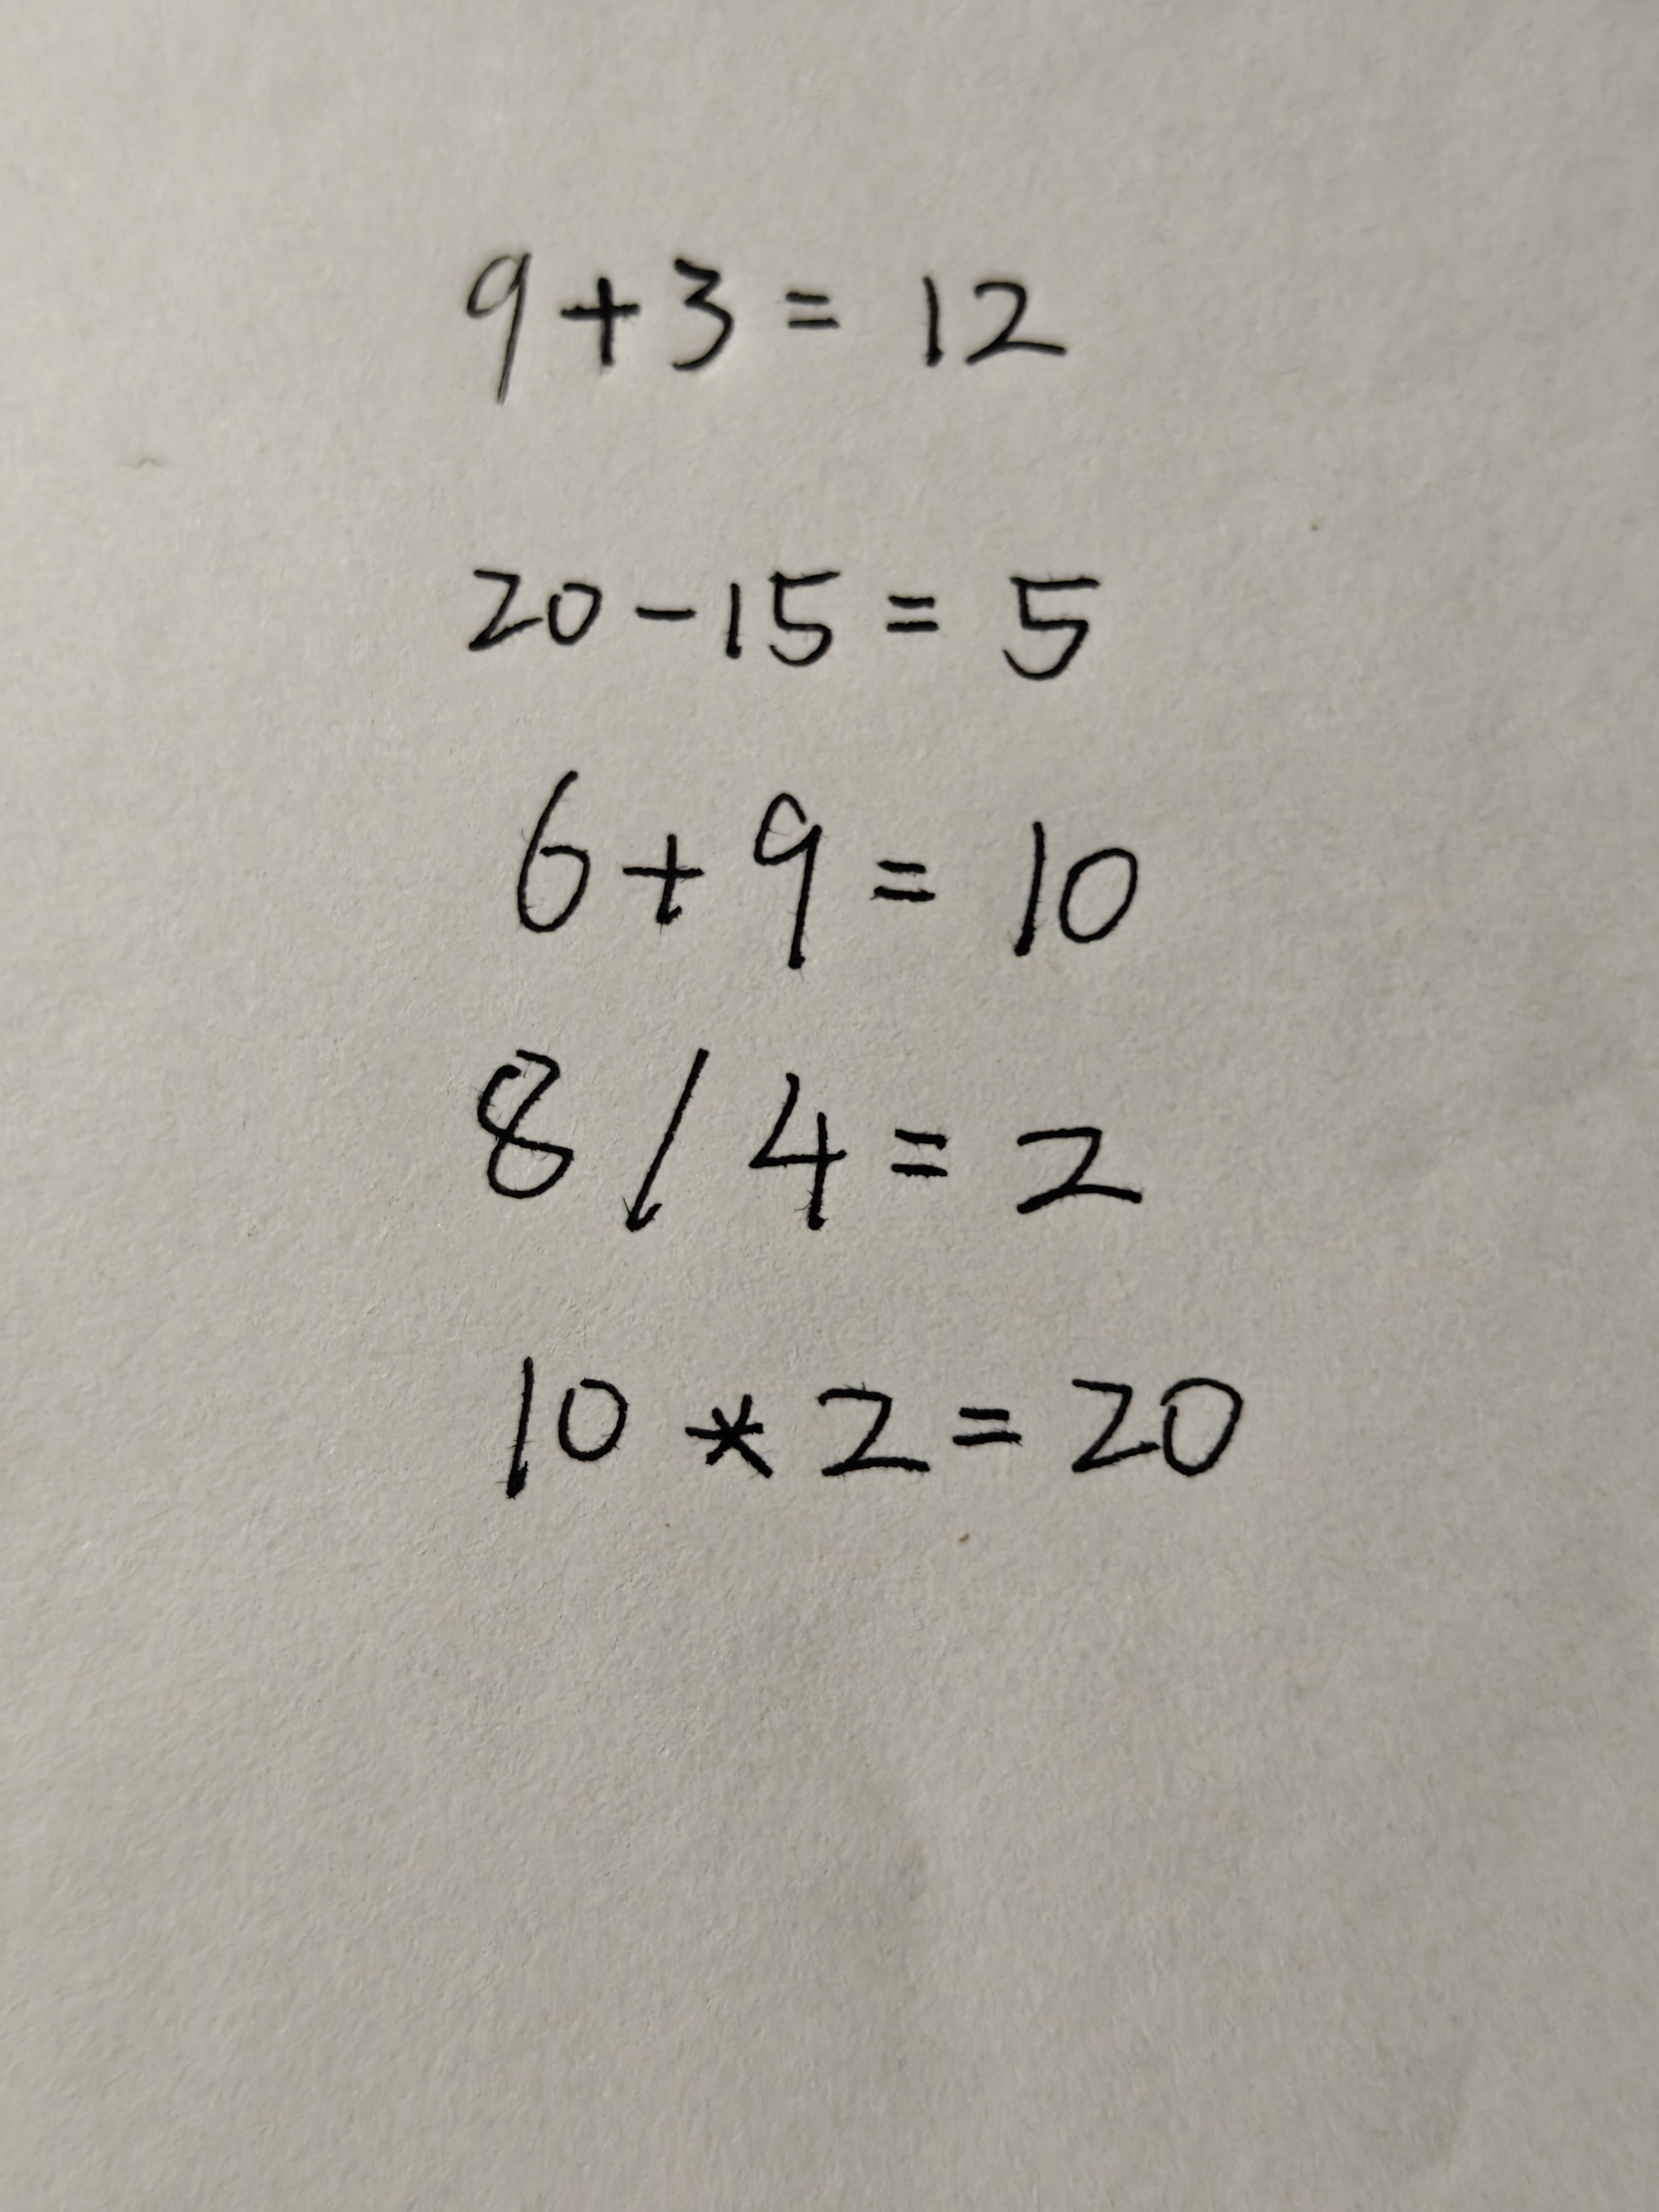 9+3=12
20-15=5
6+9=10
8/4=2
10*2=20